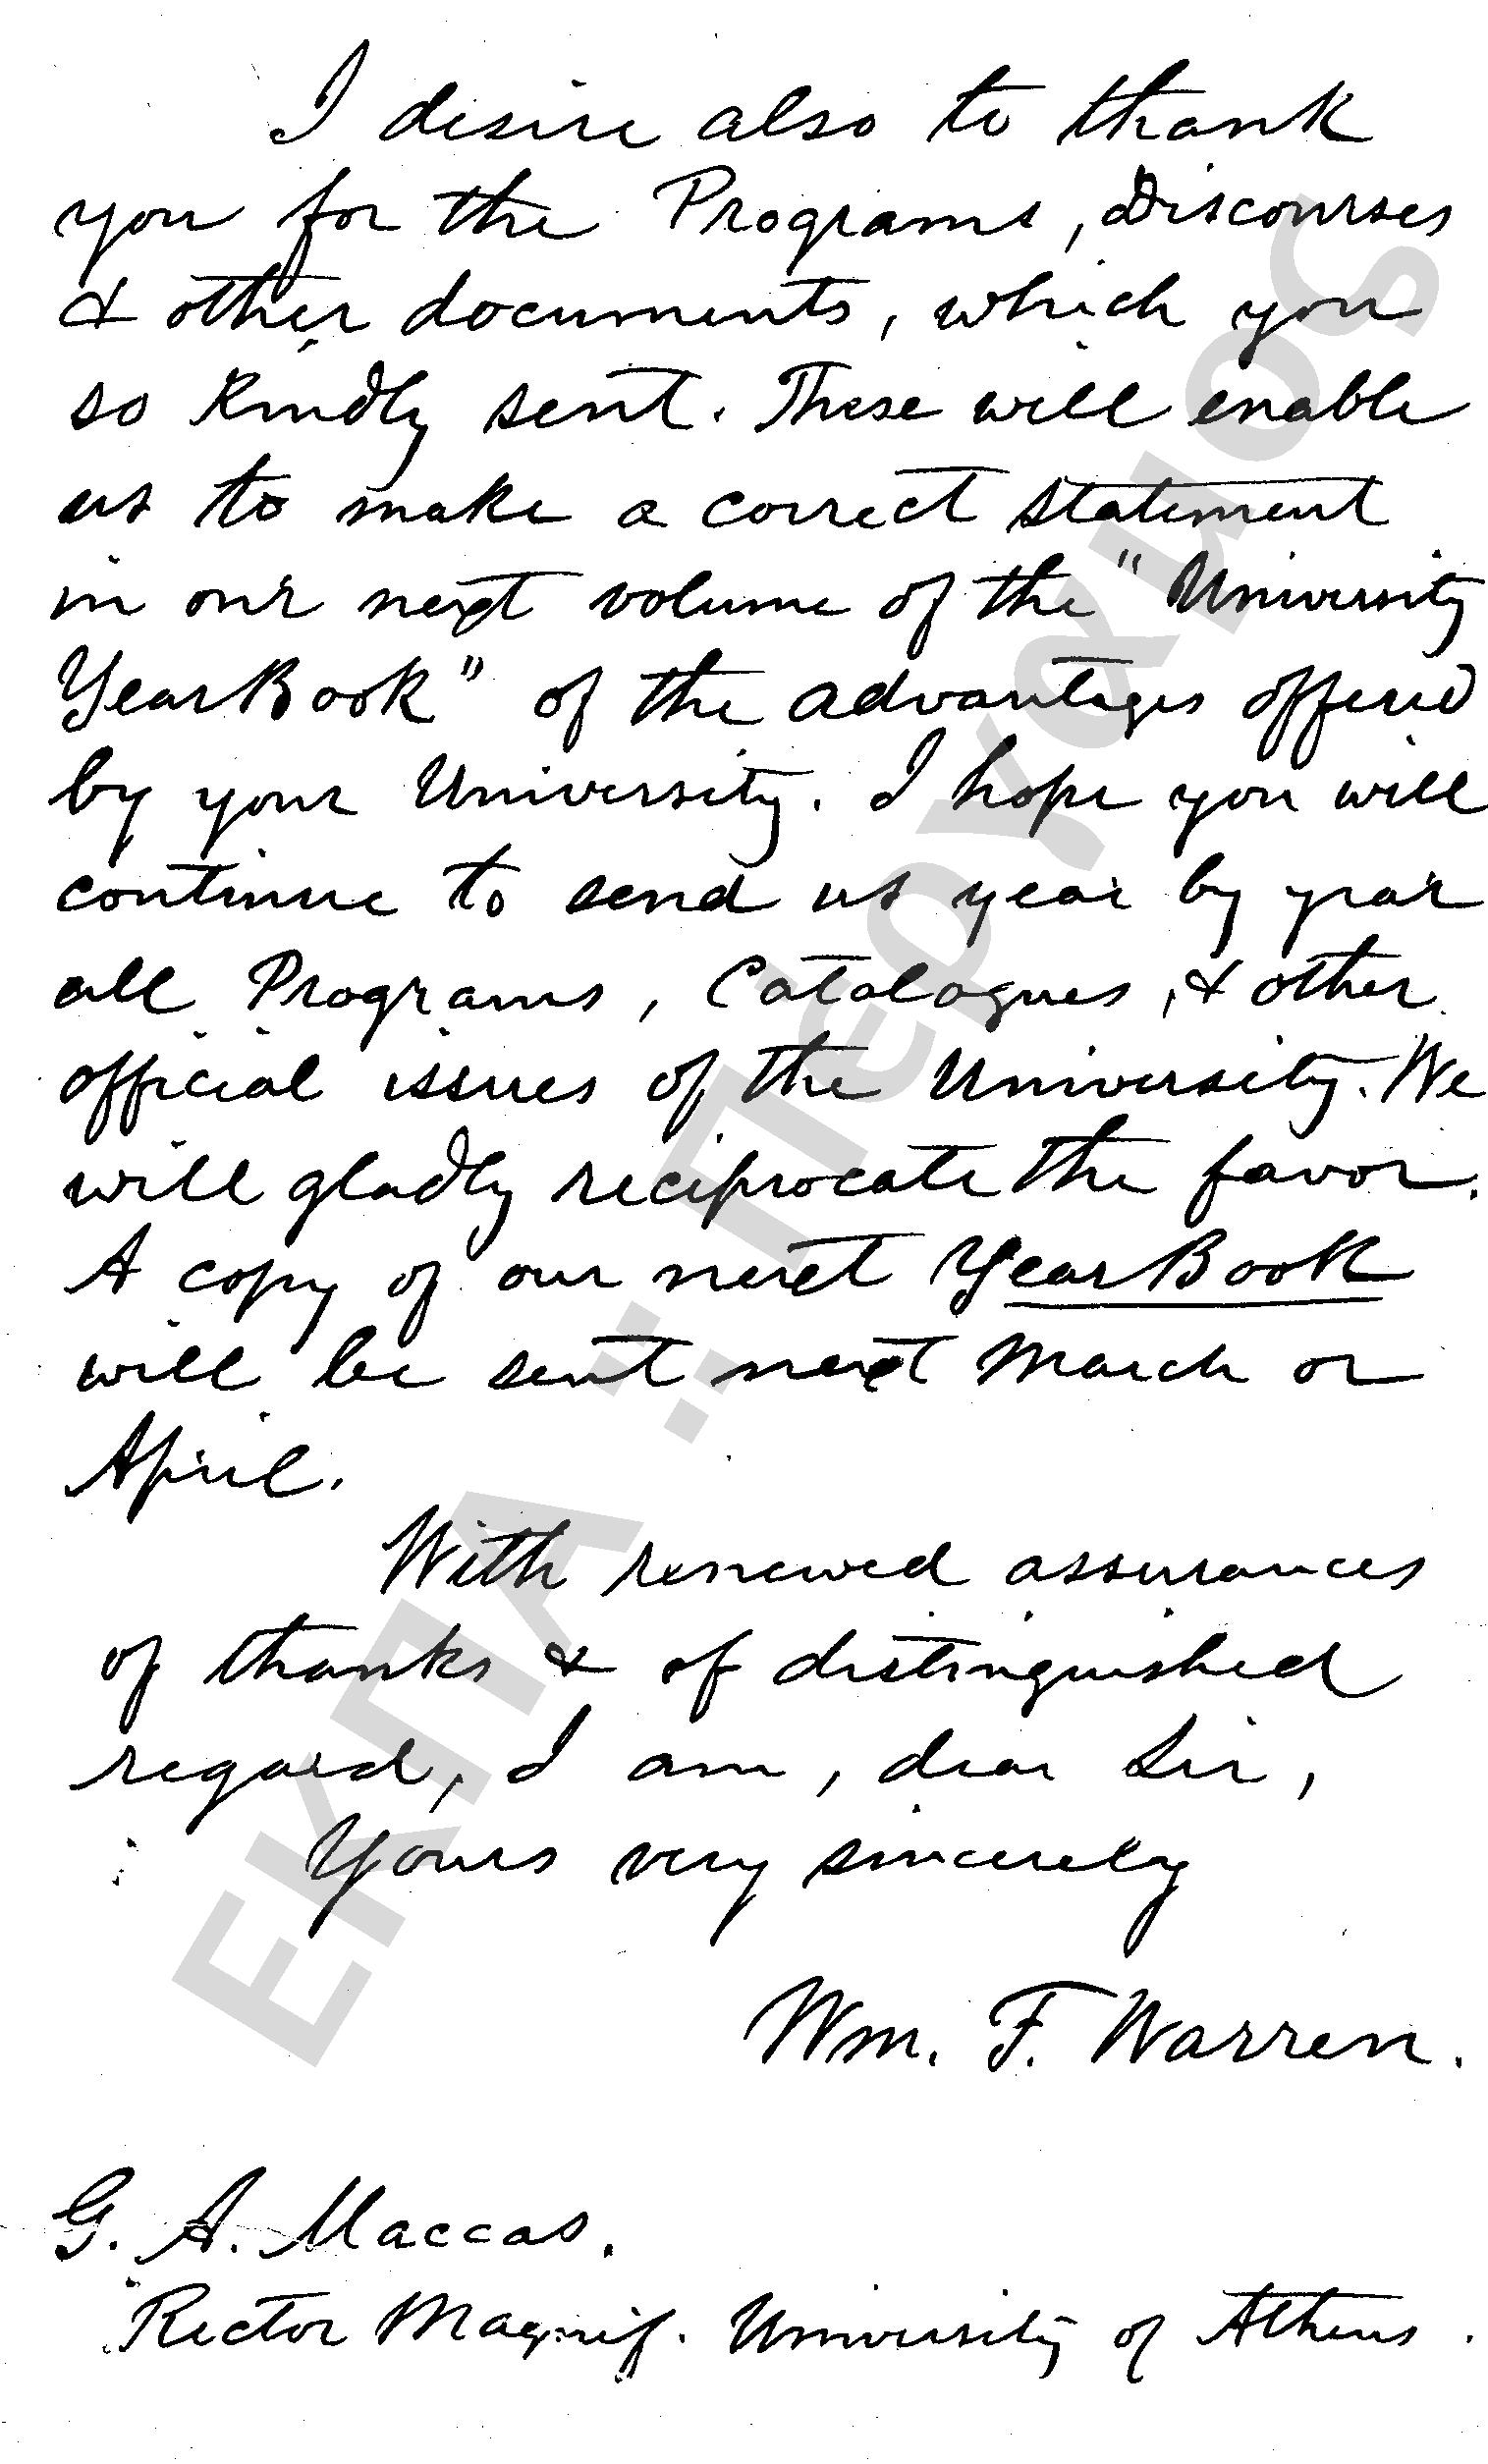 I desire also to thank
you for the Programs, Discourses
& other documents, which you
so kindly sent. These will enable
us to make a correct statement
in our next volume of the "University
Year Book" of the advantages offered
by your University. I hope you will
continue to send us year by year
all Programs, Catalogues, & other
official issues of the University. We
will gladly reciprocate the favor.
A copy of our next Year Book
will be sent next March or
April.
With renewed assurances
of thanks & of distinguished
regard, I am, dear Sir,
Yours very sincerely
Wm. F. Warren.
G. A. Maccas.
Rector Magnif. University of Athens.
ΕΚΠΑ : Πέργαμος